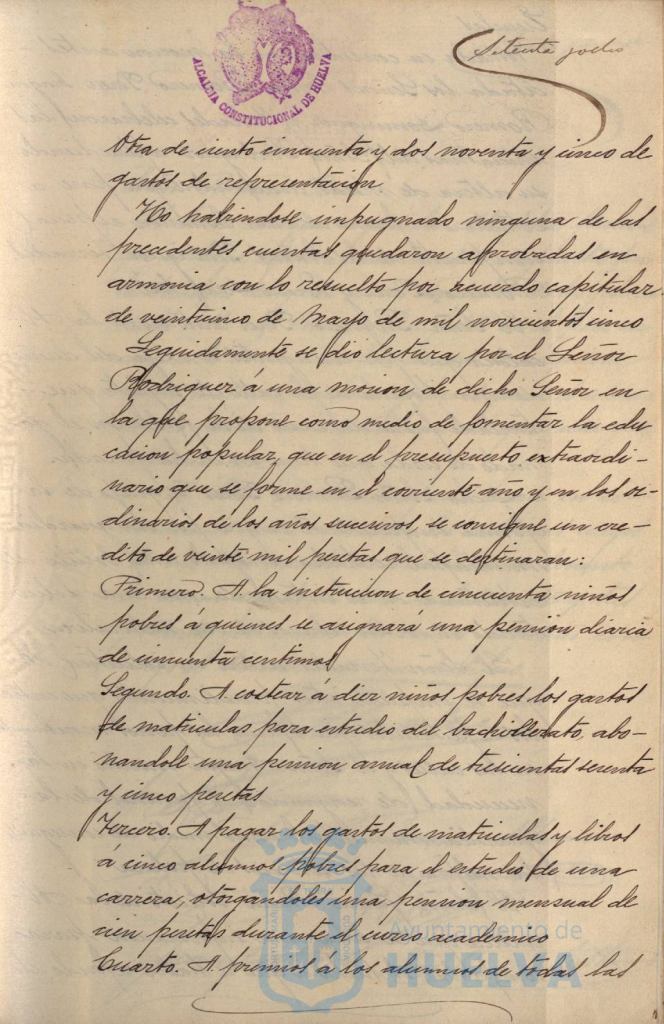 ALCALDIA CONSTITUCIONAL DE HUELVA
Setenta y ocho
Otra de ciento cincuenta y dos noventa y cinco de
gastos de representacion.
No habiendose impugnado ninguna de las
precedentes cuentas quedaron aprobadas en
armonia con lo resuelto por acuerdo capitular
de veinticinco de Mayo de mil novecientos cinco
Seguidamente se dio lectura por el Señor
Rodriguez á una mocion de dicho Señor en
la que propone como medio de fomentar la edu
cacion popular, que en el presupuesto extraordi-
nario que se forme en el corriente año y en los or-
dinarios de los años sucesivos, se consigne un cre-
dito de veinte mil pesetas que se destinaran:
Primero. A la instruccion de cincuenta niños
pobres á quienes se asignará una pension diaria
de cincuenta centimos
Segundo. A costear á diez niños pobres los gastos
de matriculas para estudio del bachillerato, abo-
nandole una pension anual de trescientas sesenta
y cinco pesetas
Tercero. A pagar los gastos de matriculas y libros
á cinco alumnos pobres para el estudio de una
carrera, otorgandoles una pension mensual de
cien pesetas durante el curso academico
Cuarto. A premios á los alumnos de todas las
Ayuntamiento de
HUELVA